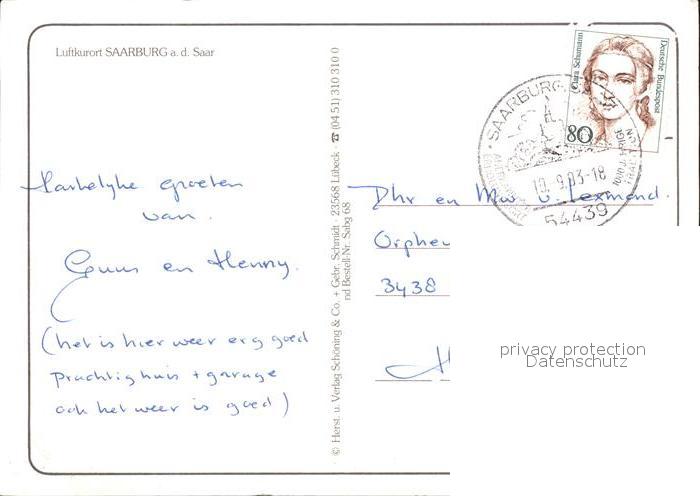 Luftkurort SAARBURG a. d. Saar
Hartelijke groeten
van.
Guus en Henny.
(het is hier weer erg goed
Prachtig huis + garage
ook het weer is goed)
© Herst. u. Verlag Schöning & Co. + Gebr. Schmidt · 23568 Lübeck · ☎ (04 51) 310 310 0
nd Bestell-Nr. Sabg 68
Clara Schumann
Deutsche Bundespost
80
SAARBURG
10.-9.93-18
54439
Dhr en Mw v. Lexmond.
Orpheu
3438
privacy protection
Datenschutz